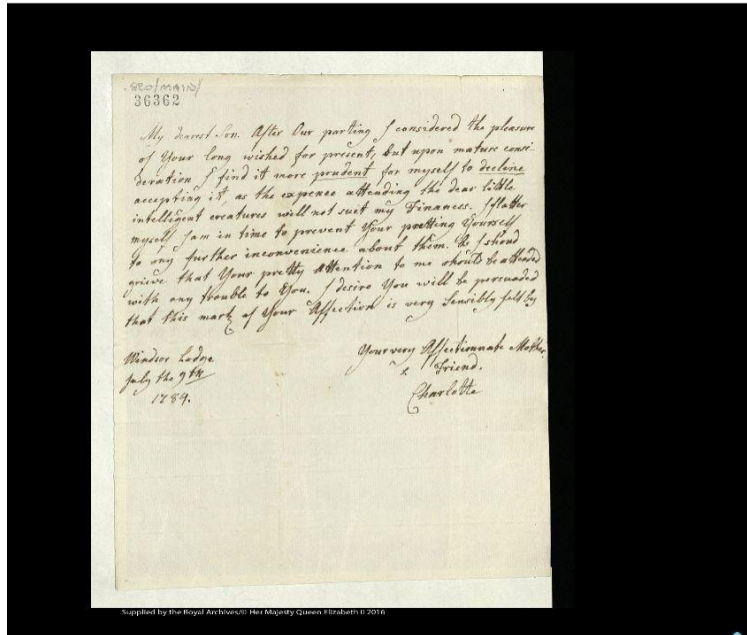 GEO/MAIN/
36362
My dearest Son. After Our parting I considered the pleasure
of Your long wished for present, but upon mature consi-
deration I find it more prudent for myself to decline
accepting it, as the expence attending the dear little
intelligent creatures will not suit my Finances. I flatter
myself I am in time to prevent Your putting Yourself
to any further inconvenience about them. As I shoud
grieve that Your pretty attention to me should be attended
with any trouble to You. I desire You will be persuaded
that this mark of Your Affection is very Sensibly felt by
Your very Affectionnate Mother
& Friend.
Charlotte
Windsor Lodge
July the 9th
1789.
Supplied by the Royal Archives/© Her Majesty Queen Elizabeth II 2016